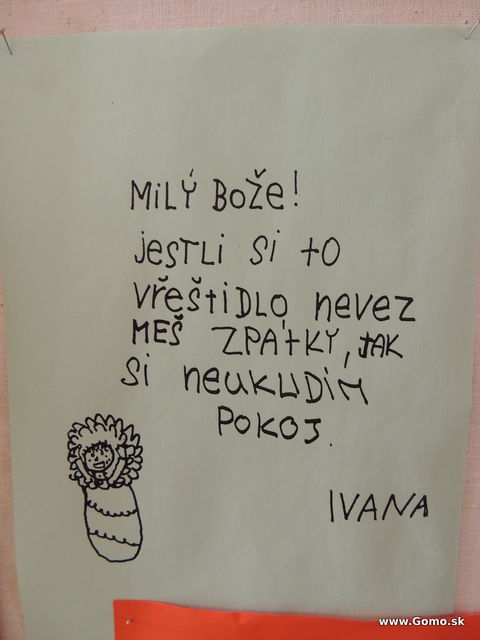 MILÝ BOŽE!
JESTLI SI TO
VŘEŠTIDLO NEVEZ
MEŠ ZPÁTKY, JAK
SI NEUKLIDIM
POKOJ.
IVANA
www.Gomo.sk